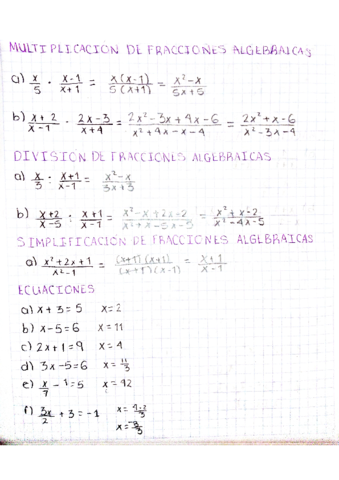 MULTIPLICACION DE FRACCIONES ALGEBRAICAS
a) x/5 · x-1/x+1 = x(x-1)/5(x+1) = x²-x/5x+5
b) x+2/x-1 · 2x-3/x+4 = 2x²-3x+4x-6/x²+4x-x-4 = 2x²+x-6/x²-3x-4
DIVISIÓN DE FRACCIONES ALGEBRAICAS
a) x/3 : x+1/x-1 = x²-x/3x+3
b) x+2/x-5 : x+1/x-1 = x²-x+2x-2/x²+x-5x-5 = x²+x-2/x²-4x-5
SIMPLIFICACIÓN DE FRACCIONES ALGEBRAICAS
a) x²+2x+1/x²-1 = (x+1)(x+1)/(x+1)(x-1) = x+1/x-1
ECUACIONES
a) x+3=5 x=2
b) x-5=6 x=11
c) 2x+1=9 x=4
d) 3x-5=6 x=11/3
e) x/7 -1=5 x=42
f) 3x/2 +3=-1
x=-8/3